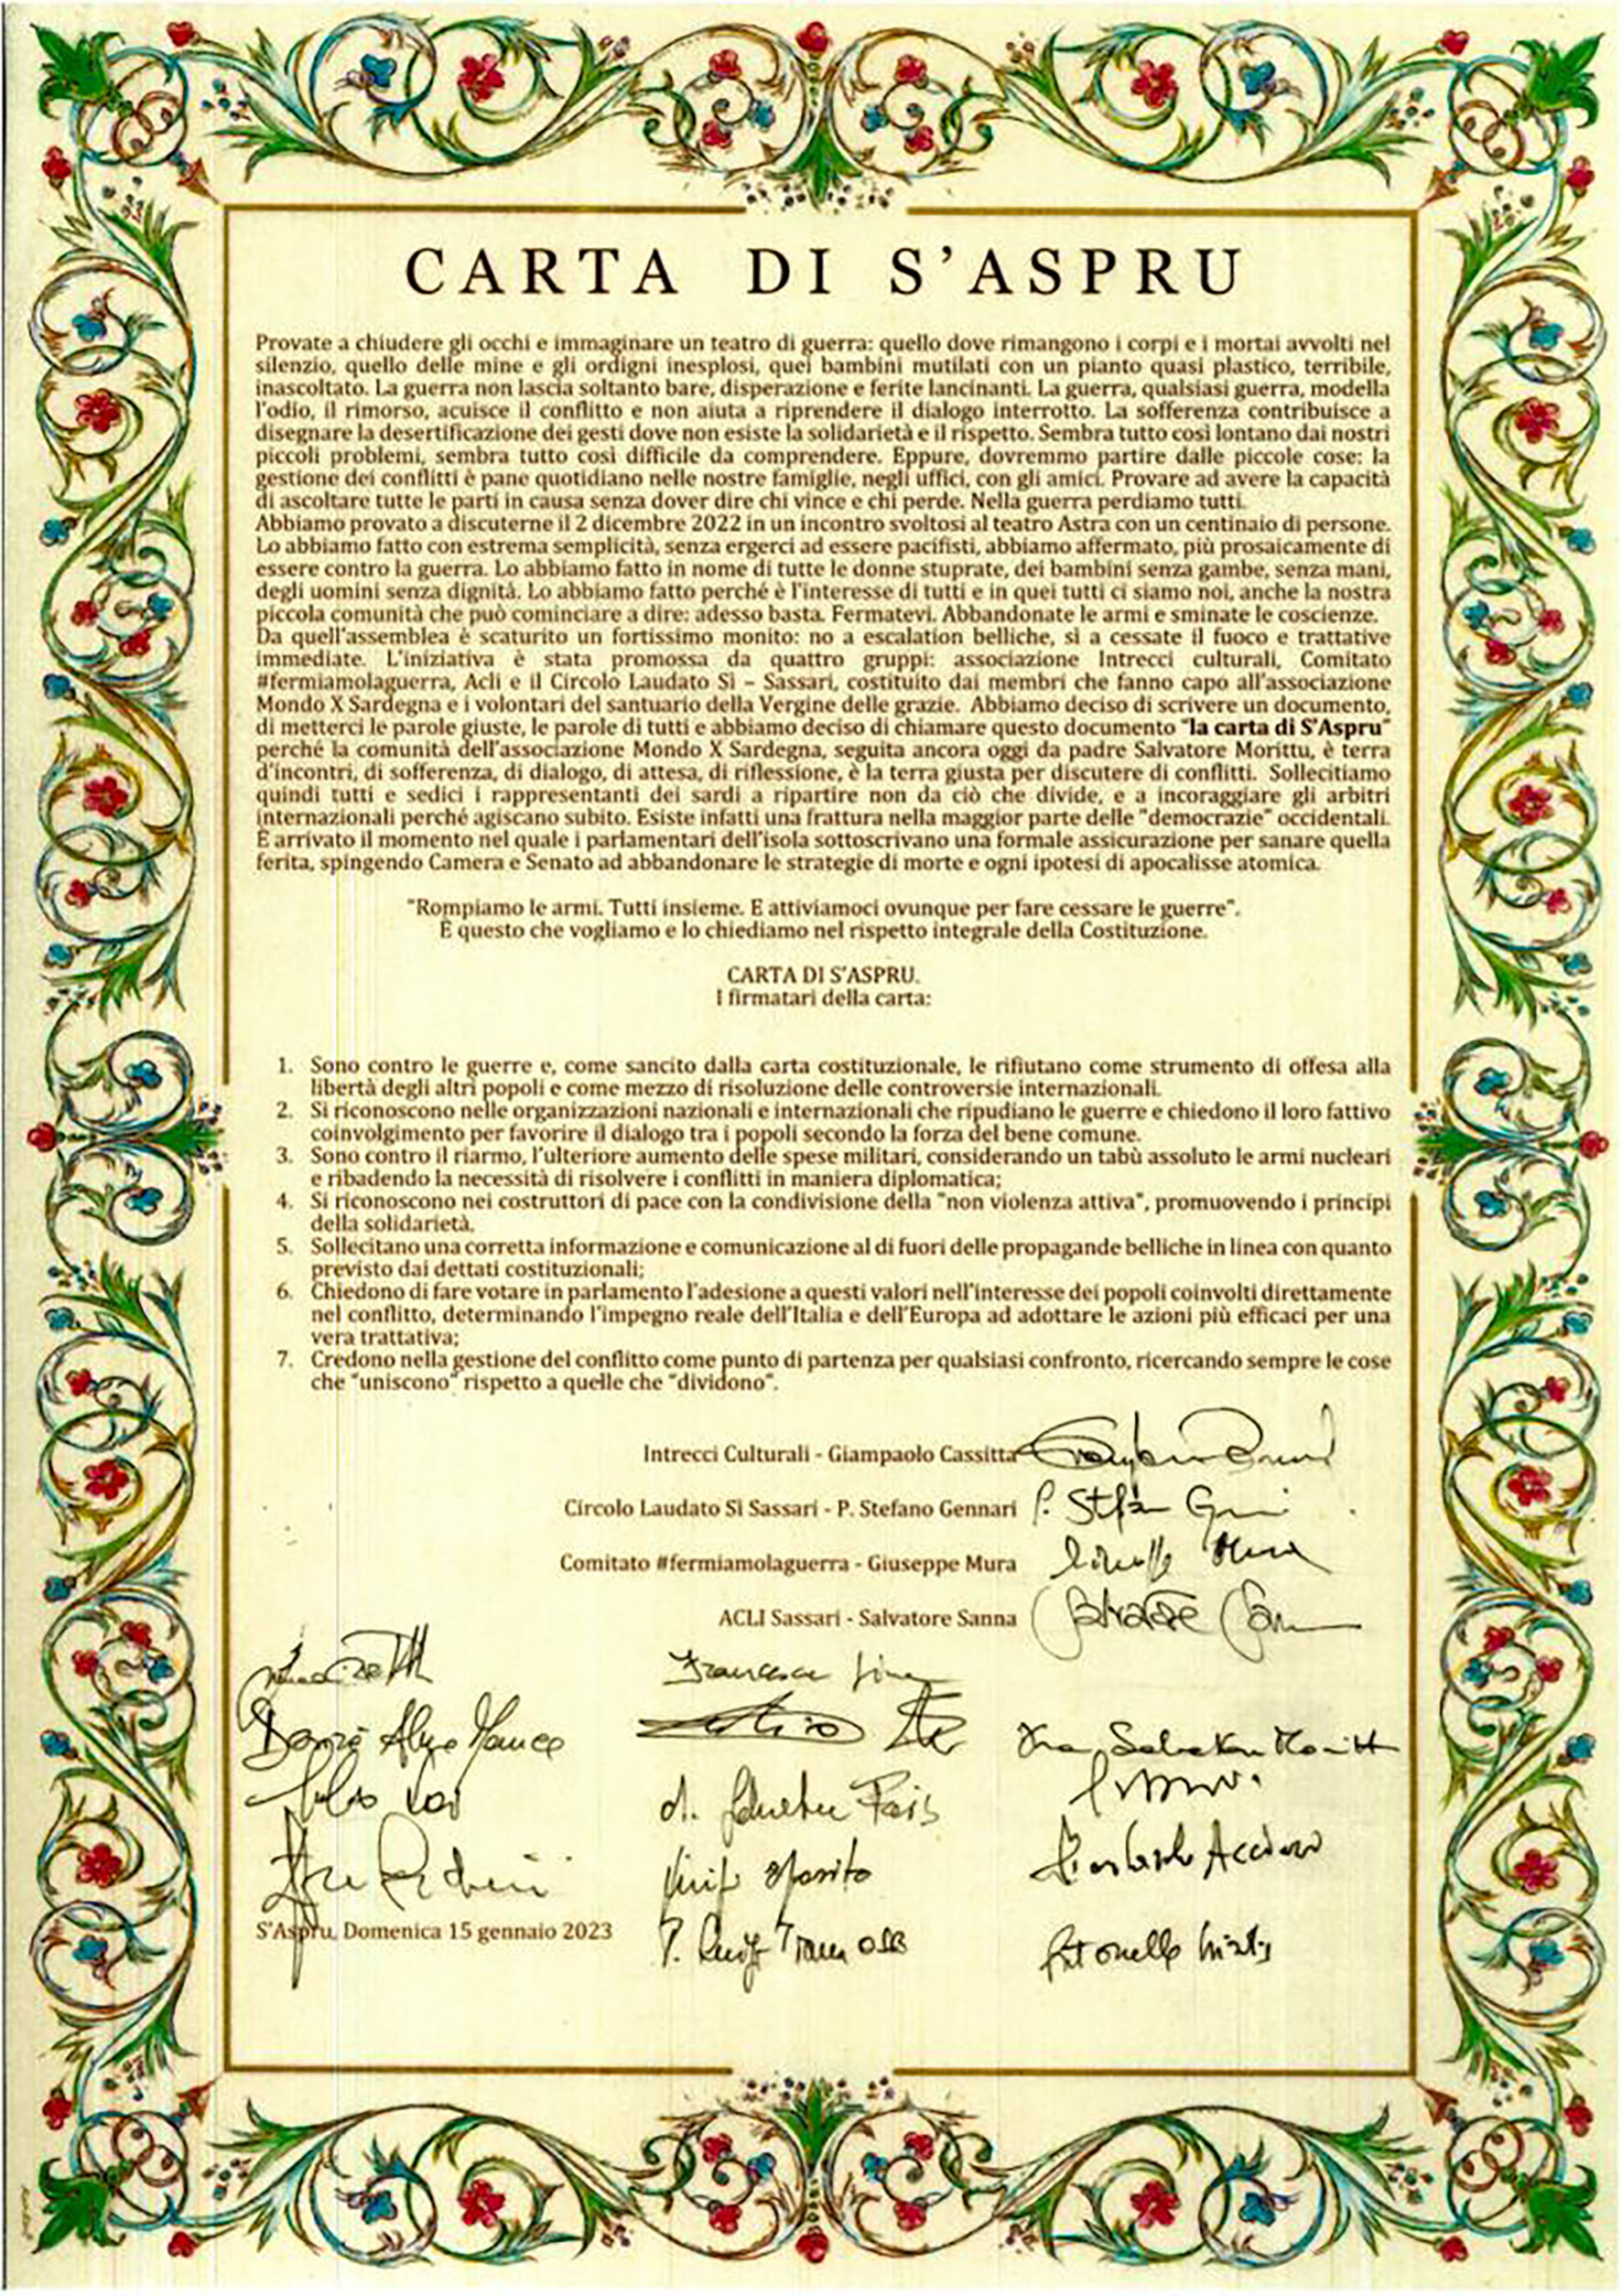 CARTA DI S'ASPRU
Provate a chiudere gli occhi e immaginare un teatro di guerra: quello dove rimangono i corpi e i mortai avvolti nel
silenzio, quello delle mine e gli ordigni inesplosi, quei bambini mutilati con un pianto quasi plastico, terribile,
inascoltato. La guerra non lascia soltanto bare, disperazione e ferite lancinanti. La guerra, qualsiasi guerra, modella
l'odio, il rimorso, acuisce il conflitto e non aiuta a riprendere il dialogo interrotto. La sofferenza contribuisce a
disegnare la desertificazione dei gesti dove non esiste la solidarietà e il rispetto. Sembra tutto così lontano dai nostri
piccoli problemi, sembra tutto così difficile da comprendere. Eppure, dovremmo partire dalle piccole cose: la
gestione dei conflitti è pane quotidiano nelle nostre famiglie, negli uffici, con gli amici. Provare ad avere la capacità
di ascoltare tutte le parti in causa senza dover dire chi vince e chi perde. Nella guerra perdiamo tutti.
Abbiamo provato a discuterne il 2 dicembre 2022 in un incontro svoltosi al teatro Astra con un centinaio di persone.
Lo abbiamo fatto con estrema semplicità, senza ergerci ad essere pacifisti, abbiamo affermato, più prosaicamente di
essere contro la guerra. Lo abbiamo fatto in nome di tutte le donne stuprate, dei bambini senza gambe, senza mani,
degli uomini senza dignità. Lo abbiamo fatto perché è l'interesse di tutti e in quei tutti ci siamo noi, anche la nostra
piccola comunità che può cominciare a dire: adesso basta. Fermatevi. Abbandonate le armi e sminate le coscienze.
Da quell'assemblea è scaturito un fortissimo monito: no a escalation belliche, sì a cessate il fuoco e trattative
immediate. L'iniziativa è stata promossa da quattro gruppi: associazione Intrecci culturali, Comitato
#fermiamolaguerra, Acli e il Circolo Laudato Sì – Sassari, costituito dai membri che fanno capo all'associazione
Mondo X Sardegna e i volontari del santuario della Vergine delle grazie. Abbiamo deciso di scrivere un documento,
di metterci le parole giuste, le parole di tutti e abbiamo deciso di chiamare questo documento "la carta di S'Aspru"
perché la comunità dell'associazione Mondo X Sardegna, seguita ancora oggi da padre Salvatore Morittu, è terra
d'incontri, di sofferenza, di dialogo, di attesa, di riflessione, è la terra giusta per discutere di conflitti. Sollecitiamo
quindi tutti e sedici i rappresentanti dei sardi a ripartire non da ciò che divide, e a incoraggiare gli arbitri
internazionali perché agiscano subito. Esiste infatti una frattura nella maggior parte delle "democrazie" occidentali.
È arrivato il momento nel quale i parlamentari dell'isola sottoscrivano una formale assicurazione per sanare quella
ferita, spingendo Camera e Senato ad abbandonare le strategie di morte e ogni ipotesi di apocalisse atomica.
"Rompiamo le armi. Tutti insieme. E attiviamoci ovunque per fare cessare le guerre".
È questo che vogliamo e lo chiediamo nel rispetto integrale della Costituzione.
CARTA DI S'ASPRU.
I firmatari della carta:
1. Sono contro le guerre e, come sancito dalla carta costituzionale, le rifiutano come strumento di offesa alla
libertà degli altri popoli e come mezzo di risoluzione delle controversie internazionali.
2. Si riconoscono nelle organizzazioni nazionali e internazionali che ripudiano le guerre e chiedono il loro fattivo
coinvolgimento per favorire il dialogo tra i popoli secondo la forza del bene comune.
3. Sono contro il riarmo, l'ulteriore aumento delle spese militari, considerando un tabù assoluto le armi nucleari
e ribadendo la necessità di risolvere i conflitti in maniera diplomatica;
4. Si riconoscono nei costruttori di pace con la condivisione della "non violenza attiva", promuovendo i principi
della solidarietà.
5. Sollecitano una corretta informazione e comunicazione al di fuori delle propagande belliche in linea con quanto
previsto dai dettati costituzionali;
6. Chiedono di fare votare in parlamento l'adesione a questi valori nell'interesse dei popoli coinvolti direttamente
nel conflitto, determinando l'impegno reale dell'Italia e dell'Europa ad adottare le azioni più efficaci per una
vera trattativa;
7. Credono nella gestione del conflitto come punto di partenza per qualsiasi confronto, ricercando sempre le cose
che "uniscono" rispetto a quelle che "dividono".
Intrecci Culturali - Giampaolo Cassitta
Circolo Laudato Sì Sassari - P. Stefano Gennari
Comitato #fermiamolaguerra - Giuseppe Mura
ACLI Sassari - Salvatore Sanna
Francesca
S'Aspru, Domenica 15 gennaio 2023